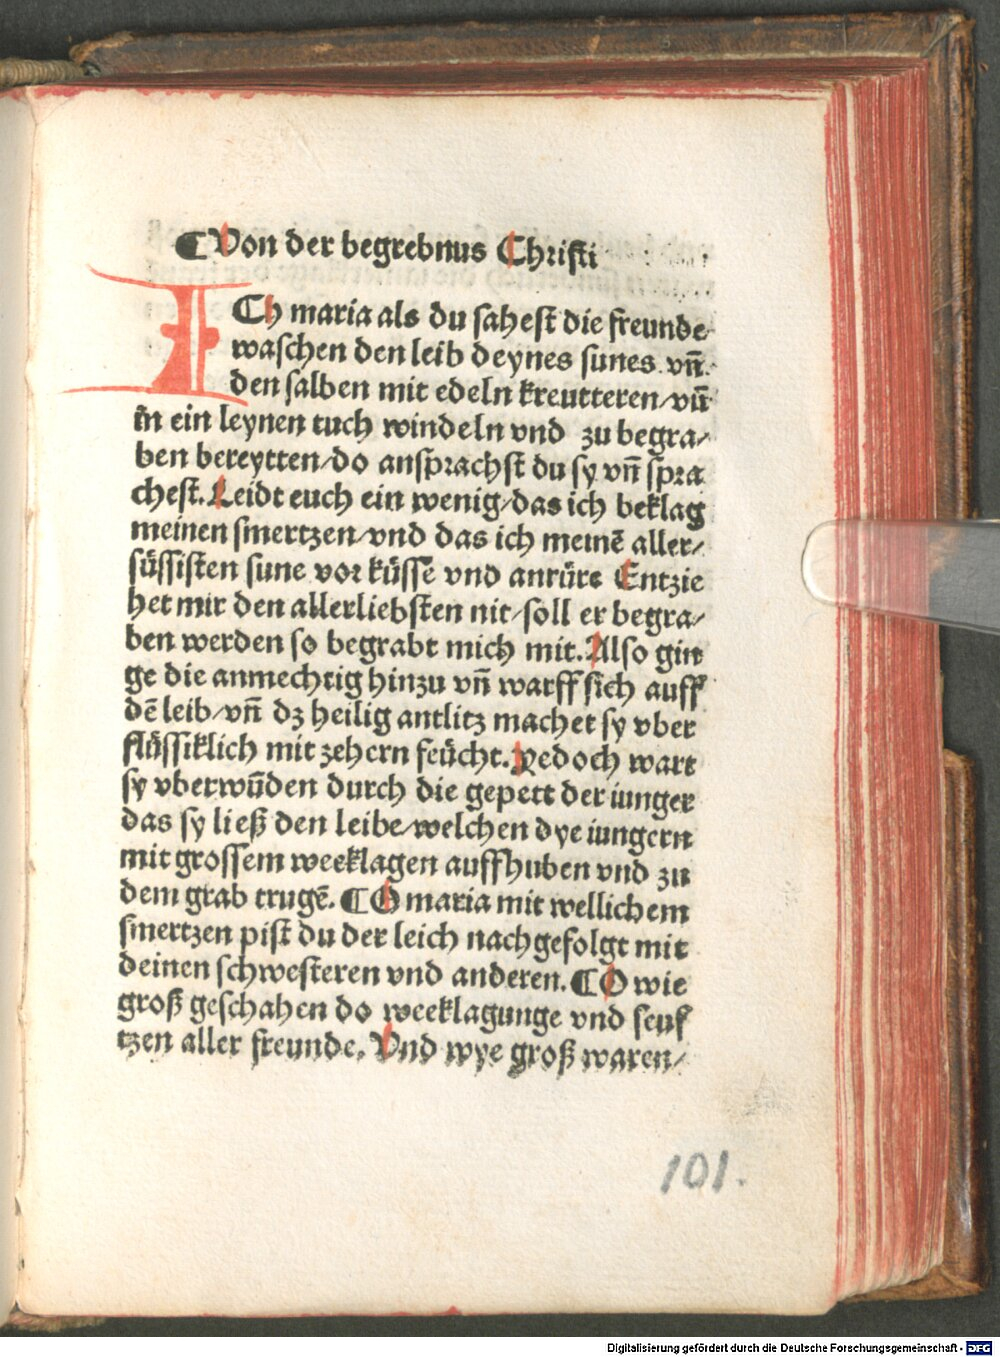 ¶Von der begrebnus Christi
ICh maria als du sahest die freunde
waschen den leib deynes sunes vn̄
den salben mit edeln kreutteren/vn̄
in ein leynen tuch windeln vnd zu begra/
ben bereytten/do ansprachst du sy vn̄ spra
chest. Leidt euch ein wenig/das ich beklag
meinen smertzen/vnd das ich meinē aller/
süssisten sune vor küsse vnd anrüre Entzie
het mir den allerliebsten nit/soll er begra/
ben werden so begrabt mich mit. Also gin
ge die anmechtig hinzu vn̄ warff sich auff
dē leib/vn̄ dz heilig antlitz machet sy vber
flüssiklich mit zehern feücht. Yedoch wart
sy vberwūden durch die gepett der iunger
das sy ließ den leibe/welchen dye iungern
mit grossem weeklagen auffhuben vnd zu
dem grab trugē. ¶O maria mit wellichem
smertzen pist du der leich nachgefolgt mit
deinen schwesteren vnd anderen. ¶O wie
groß geschahen do weeklagunge vnd seuf
tzen aller freunde. Vnd wye groß waren/
101.
Digitalisierung gefördert durch die Deutsche Forschungsgemeinschaft - DFG